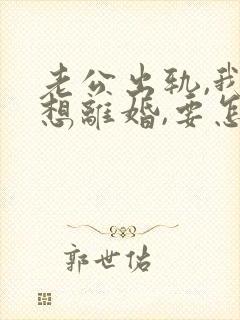 老公出轨,我
想離婚,要怎
郭世佑